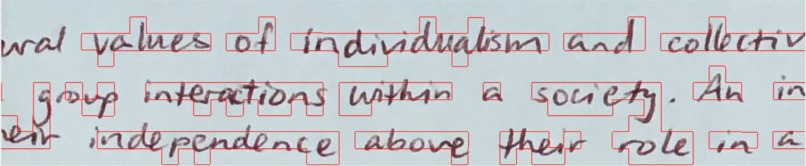 ural values of individualism and collectiv
group interactions within a society. An in
eir independence above their role in a